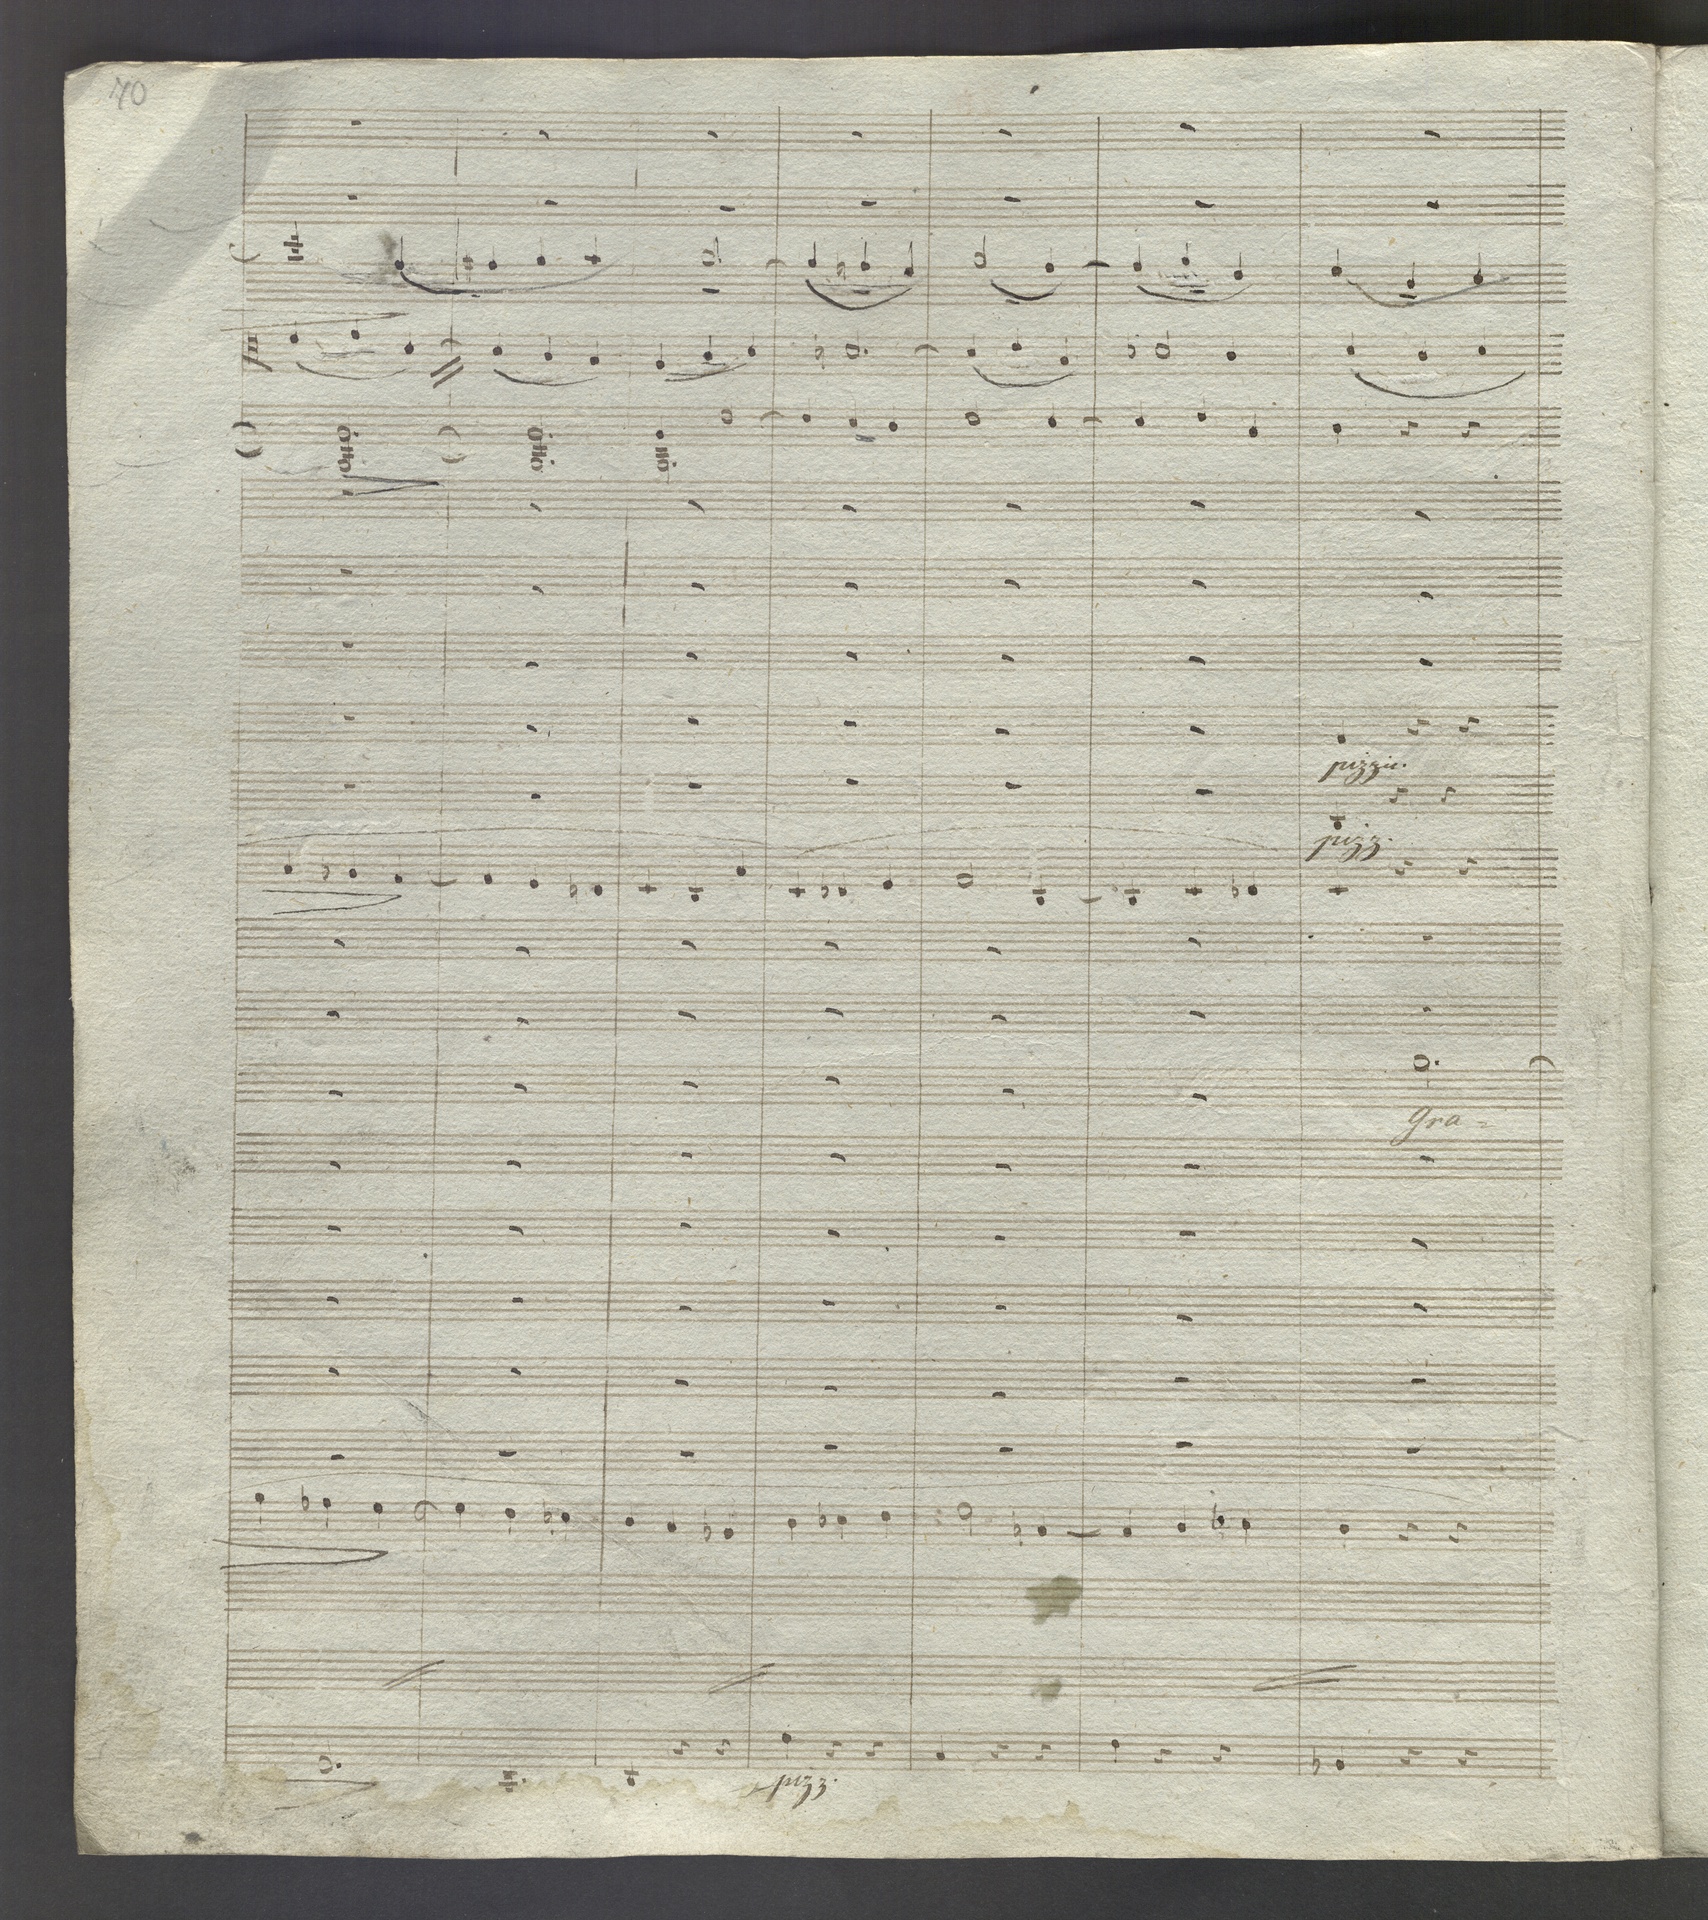 70
pizzic.
pizz.
Gra =
pizz.